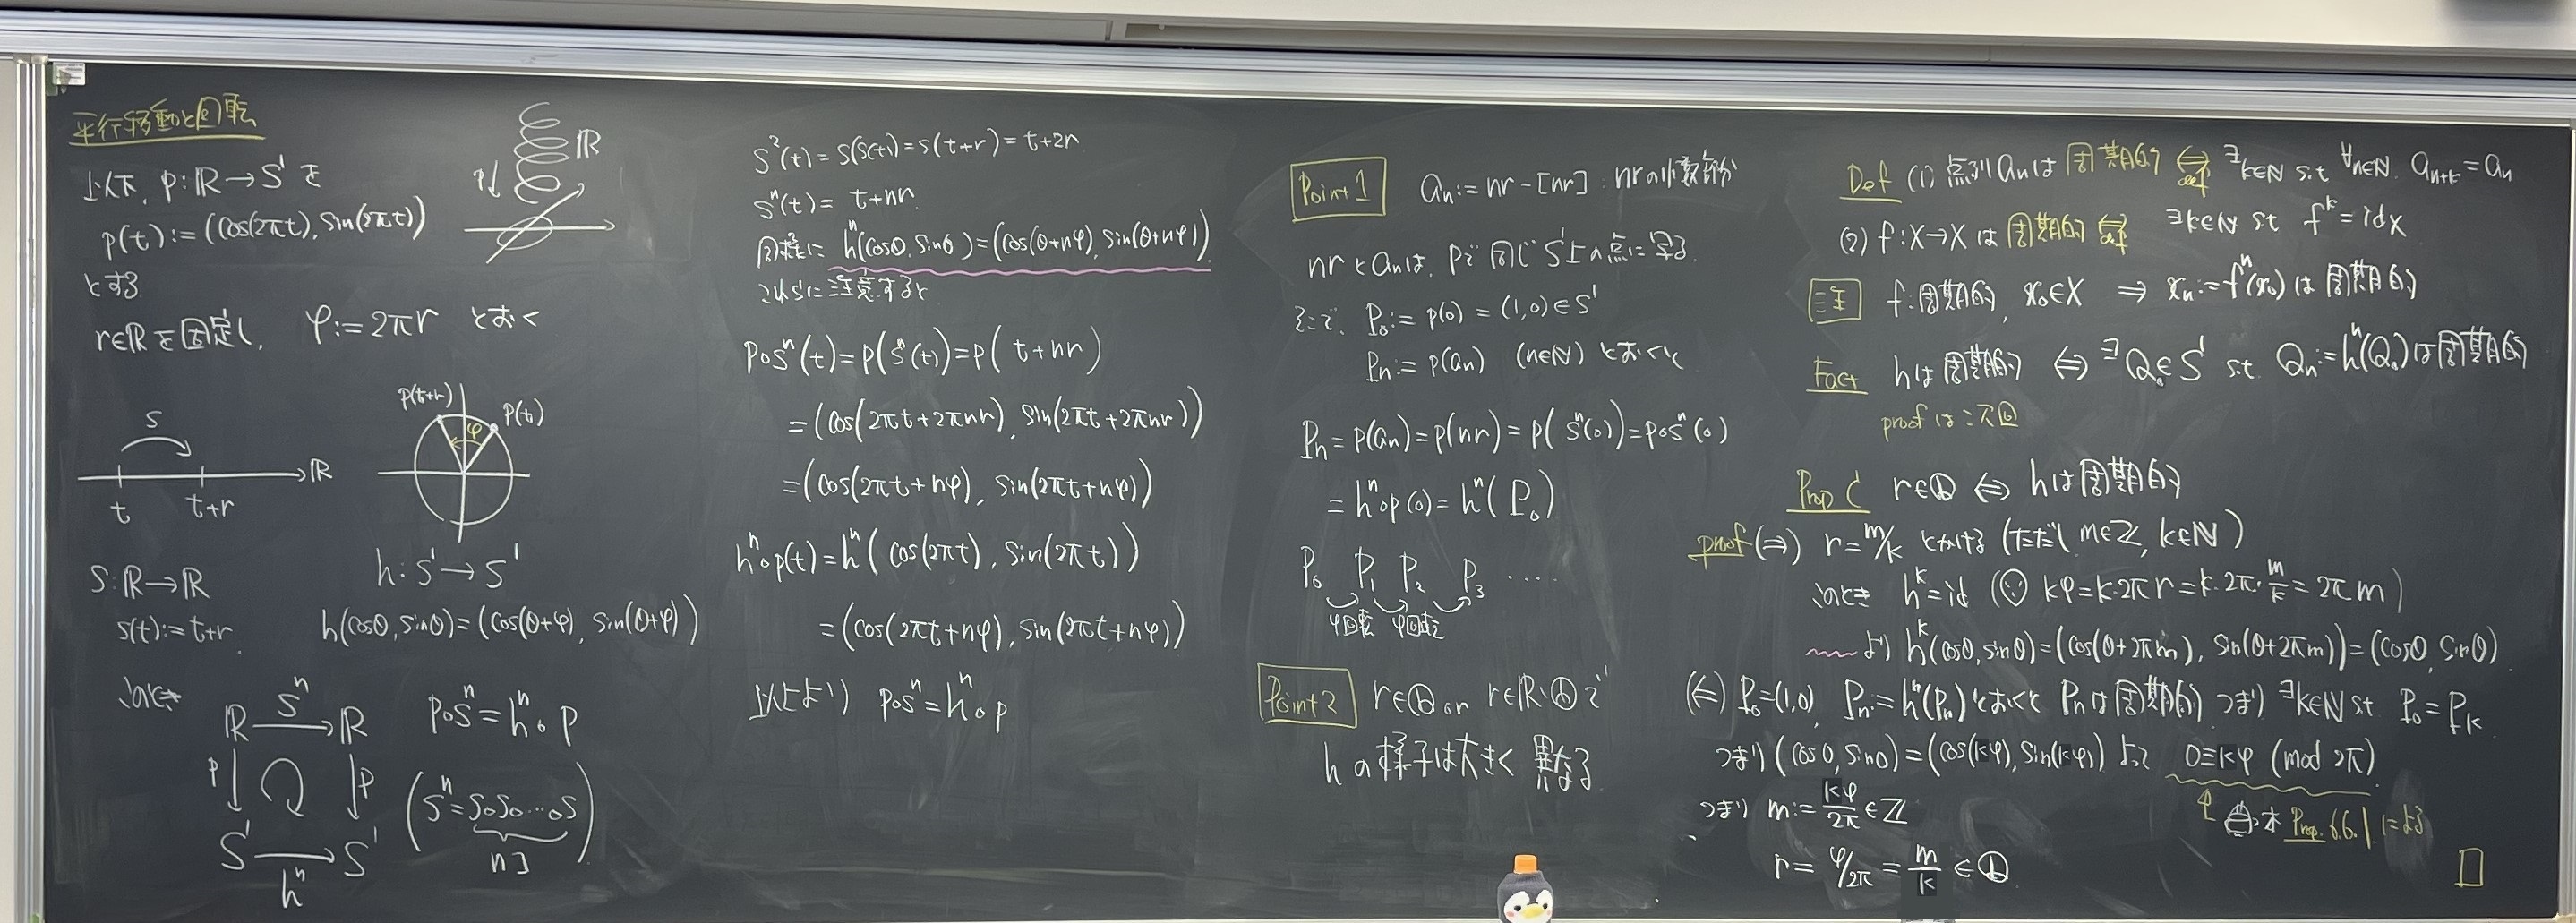 平行移動と回転
以下, p: ℝ → S¹ を
p(t) := (cos(2πt), sin(2πt))
とする
r∈ℝ を固定し, φ := 2πr とおく
p↓ ℝ
S
t t+r ℝ
p(t+r) φ p(t)
S: ℝ → ℝ
s(t) := t+r
h: S¹ → S¹
h(cosθ, sinθ) = (cos(θ+φ), sin(θ+φ))
このとき
ℝ —Sⁿ→ ℝ
p↓ ↓p
S¹ —hⁿ→ S¹
p∘sⁿ = hⁿ∘p
(Sⁿ = S∘S∘⋯∘S)
nコ
S²(t) = S(S(t)) = s(t+r) = t+2r
Sⁿ(t) = t+nr
同様に hⁿ(cosθ, sinθ) = (cos(θ+nφ), sin(θ+nφ))
これらに注意すると
p∘sⁿ(t) = p(sⁿ(t)) = p(t+nr)
= (cos(2πt+2πnr), sin(2πt+2πnr))
= (cos(2πt+nφ), sin(2πt+nφ))
hⁿ∘p(t) = hⁿ(cos(2πt), sin(2πt))
= (cos(2πt+nφ), sin(2πt+nφ))
以上より p∘sⁿ = hⁿ∘p
Point 1 aₙ := nr − [nr] nrの小数部分
nr と aₙは, pで同じS¹上の点に写る.
そこで, P₀ := p(0) = (1,0) ∈ S¹
Pₙ := p(aₙ) (n∈ℕ) とおくと
Pₙ = p(aₙ) = p(nr) = p(sⁿ(0)) = p∘sⁿ(0)
= hⁿ∘p(0) = hⁿ(P₀)
P₀ P₁ P₂ P₃ ....
φ回転 φ回転
Point 2 r∈ℚ or r∈ℝ\ℚ で
h の様子は大きく異なる
Def (1) 点列 aₙ は周期的 ⇔def ∃k∈ℕ s.t ∀n∈ℕ. aₙ₊ₖ = aₙ
(2) f: X→X は周期的 ⇔def ∃k∈ℕ st fᵏ = idx
注 f: 周期的, x₀∈X ⇒ xₙ := fⁿ(x₀) は周期的
Fact hは周期的 ⇔ ∃Q₀∈S¹ s.t. Qₙ := hⁿ(Q₀) は周期的
proof は次回
Prop C r∈ℚ ⇔ hは周期的
proof (⇒) r = m/k とかける (ただし m∈ℤ, k∈ℕ)
このとき hᵏ = id (∵ kφ = k·2πr = k·2π·m/k = 2πm)
より hᵏ(cosθ, sinθ) = (cos(θ+2πm), sin(θ+2πm)) = (cosθ, sinθ)
(⇐) P₀ = (1,0), Pₙ := hⁿ(P₀) とおくと Pₙは周期的 つまり ∃k∈ℕ s.t. P₀ = Pₖ
つまり (cos 0, sin 0) = (cos(kφ), sin(kφ)) よって 0 ≡ kφ (mod 2π)
つまり m := kφ/2π ∈ ℤ
本 Prop. 6.6.1 による
r = φ/2π = m/k ∈ ℚ
□